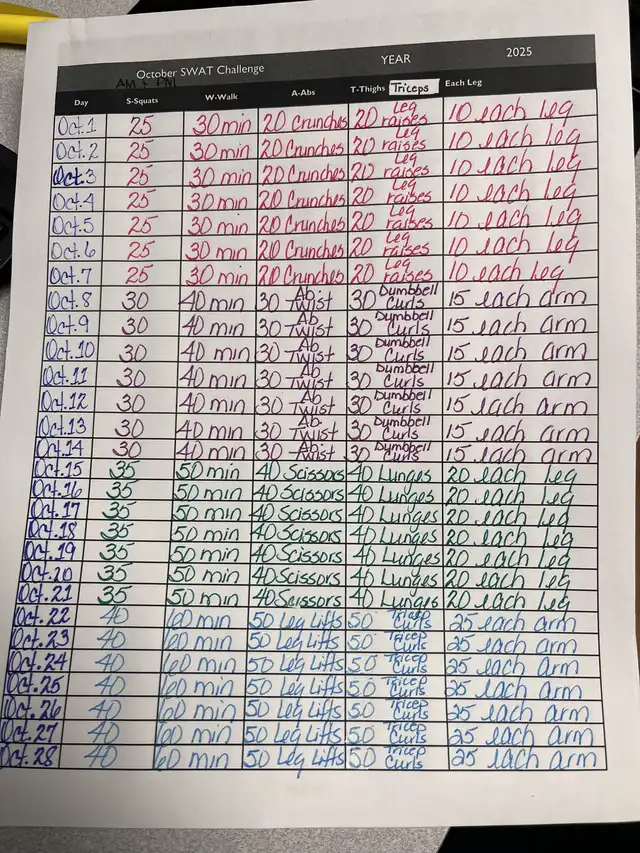 October SWAT Challenge YEAR 2025
AM & PM
Day S-Squats W-Walk A-Abs T-Thighs Triceps Each Leg
Oct.1 25 30 min 20 Crunches 20 Leg raises 10 each leg
Oct.2 25 30 min 20 Crunches 20 Leg raises 10 each leg
Oct.3 25 30 min 20 Crunches 20 Leg raises 10 each leg
Oct.4 25 30 min 20 Crunches 20 Leg raises 10 each leg
Oct.5 25 30 min 20 Crunches 20 Leg raises 10 each leg
Oct.6 25 30 min 20 Crunches 20 Leg raises 10 each leg
Oct.7 25 30 min 20 Crunches 20 Leg raises 10 each leg
Oct.8 30 40 min 30 Ab Twist 30 Dumbbell Curls 15 each arm
Oct.9 30 40 min 30 Ab Twist 30 Dumbbell Curls 15 each arm
Oct.10 30 40 min 30 Ab Twist 30 Dumbbell Curls 15 each arm
Oct.11 30 40 min 30 Ab Twist 30 Dumbbell Curls 15 each arm
Oct.12 30 40 min 30 Ab Twist 30 Dumbbell Curls 15 each arm
Oct.13 30 40 min 30 Ab Twist 30 Dumbbell Curls 15 each arm
Oct.14 30 40 min 30 Ab Twist 30 Dumbbell Curls 15 each arm
Oct.15 35 50 min 40 Scissors 40 Lunges 20 each leg
Oct.16 35 50 min 40 Scissors 40 Lunges 20 each leg
Oct.17 35 50 min 40 Scissors 40 Lunges 20 each leg
Oct.18 35 50 min 40 Scissors 40 Lunges 20 each leg
Oct.19 35 50 min 40 Scissors 40 Lunges 20 each leg
Oct.20 35 50 min 40 Scissors 40 Lunges 20 each leg
Oct.21 35 50 min 40 Scissors 40 Lunges 20 each leg
Oct.22 40 60 min 50 Leg Lifts 50 Tricep Curls 25 each arm
Oct.23 40 60 min 50 Leg Lifts 50 Tricep Curls 25 each arm
Oct.24 40 60 min 50 Leg Lifts 50 Tricep Curls 25 each arm
Oct.25 40 60 min 50 Leg Lifts 50 Tricep Curls 25 each arm
Oct.26 40 60 min 50 Leg Lifts 50 Tricep Curls 25 each arm
Oct.27 40 60 min 50 Leg Lifts 50 Tricep Curls 25 each arm
Oct.28 40 60 min 50 Leg Lifts 50 Tricep Curls 25 each arm